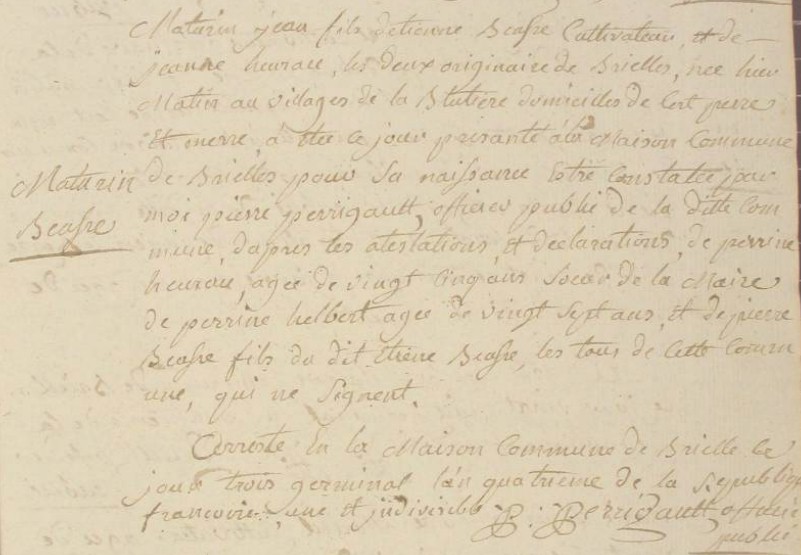 Maturin jean fils detienne Beasse Cultivateur, et de
jeanne heurau, les deux originaire de Brielles, nee hier
Matin au villages de la Blutiere domicilles de Cest perre
Et merre, a ete ce jour presanté a la Maison Commune
Maturin Beasse
de Brielles pour Sa naissance Estre Constatée par
moi pierre perrigault, officier publié de la ditte Com
mune, dapres les atestations, et declarations, de perrine
heurau, agée de vingt Cinq ans Soeur de la Maire
de perrine helbert agée de vingt Sept ans, Et de pierre
Beasre fils du dit Etiene Beasre, les tous de Cette Comm
une, qui ne Signent.
Cerresté En la Maison Commune de Brielle Ce
jour trois germinal l'an quatrieme de la Republique
francoise, une et jndivisible P: Perrigault officier
publié